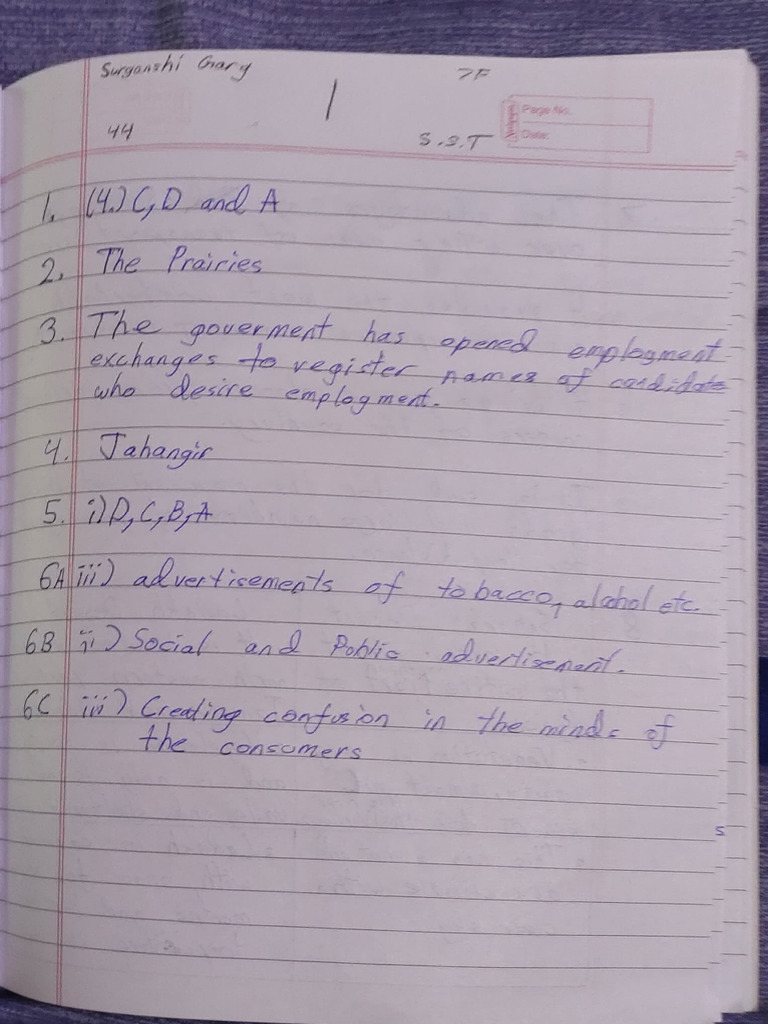 Surganshi Garg
7F
1
Page No.
Date:
44
S.S.T
1. (4.) C, D and A
2. The Prairies
3. The goverment has opened employment
exchanges to register names of candidate
who desire employment.
4. Jahangir
5. i) D, C, B, A
6A iii) advertisements of tobacco, alcohol etc.
6B ii) Social and Public advertisement.
6C iii) Creating confusion in the minds of
the consumers
s